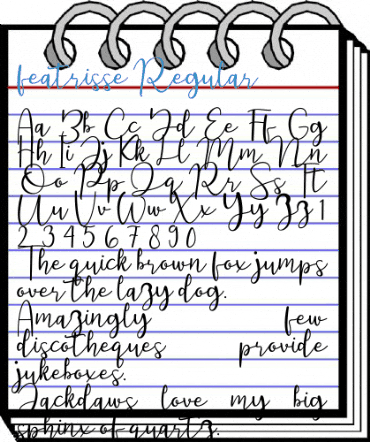 featrisse Regular
Aa Bb Cc Dd Ee Ff Gg
Hh Ii Jj Kk Ll Mm Nn
Oo Pp Qq Rr Ss Tt
Uu Vv Ww Xx Yy Zz 1
2 3 4 5 6 7 8 9 0
The quick brown fox jumps
over the lazy dog.
Amazingly few
discotheques provide
jukeboxes.
Jackdaws love my big
sphinx of quartz.